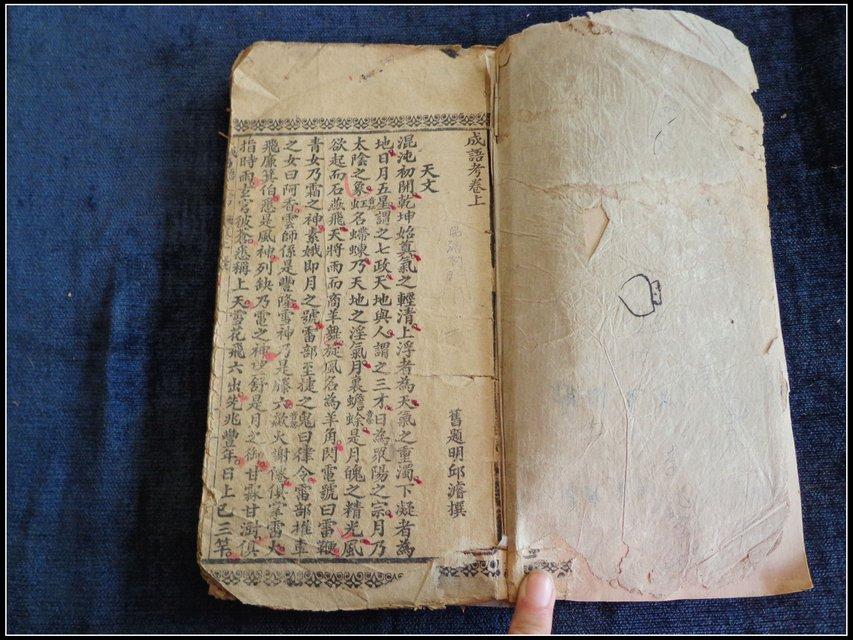 成語考卷上
舊題明邱濬撰
天文
混沌初開乾坤始奠氣之輕清上浮者為天氣之重濁下凝者為
地日月五星謂之七政天地與人謂之三才日為眾陽之宗月乃
太陰之象虹名螮蝀乃天地之淫氣月裏蟾蜍是月魄之精光風
欲起而石燕飛天將雨而商羊舞旋風名為羊角閃電號曰雷鞭
青女乃霜之神素娥即月之號雷部至捷之鬼曰律令雷部推車
之女曰阿香雲師係是豐隆雪神乃是滕六歘火謝僊俱掌雷火
飛廉箕伯悉是風神列缺乃電之神望舒是月之御甘霖甘澍俱
指時雨玄穹彼蒼悉稱上天雪花飛六出先兆豐年日上已三竿